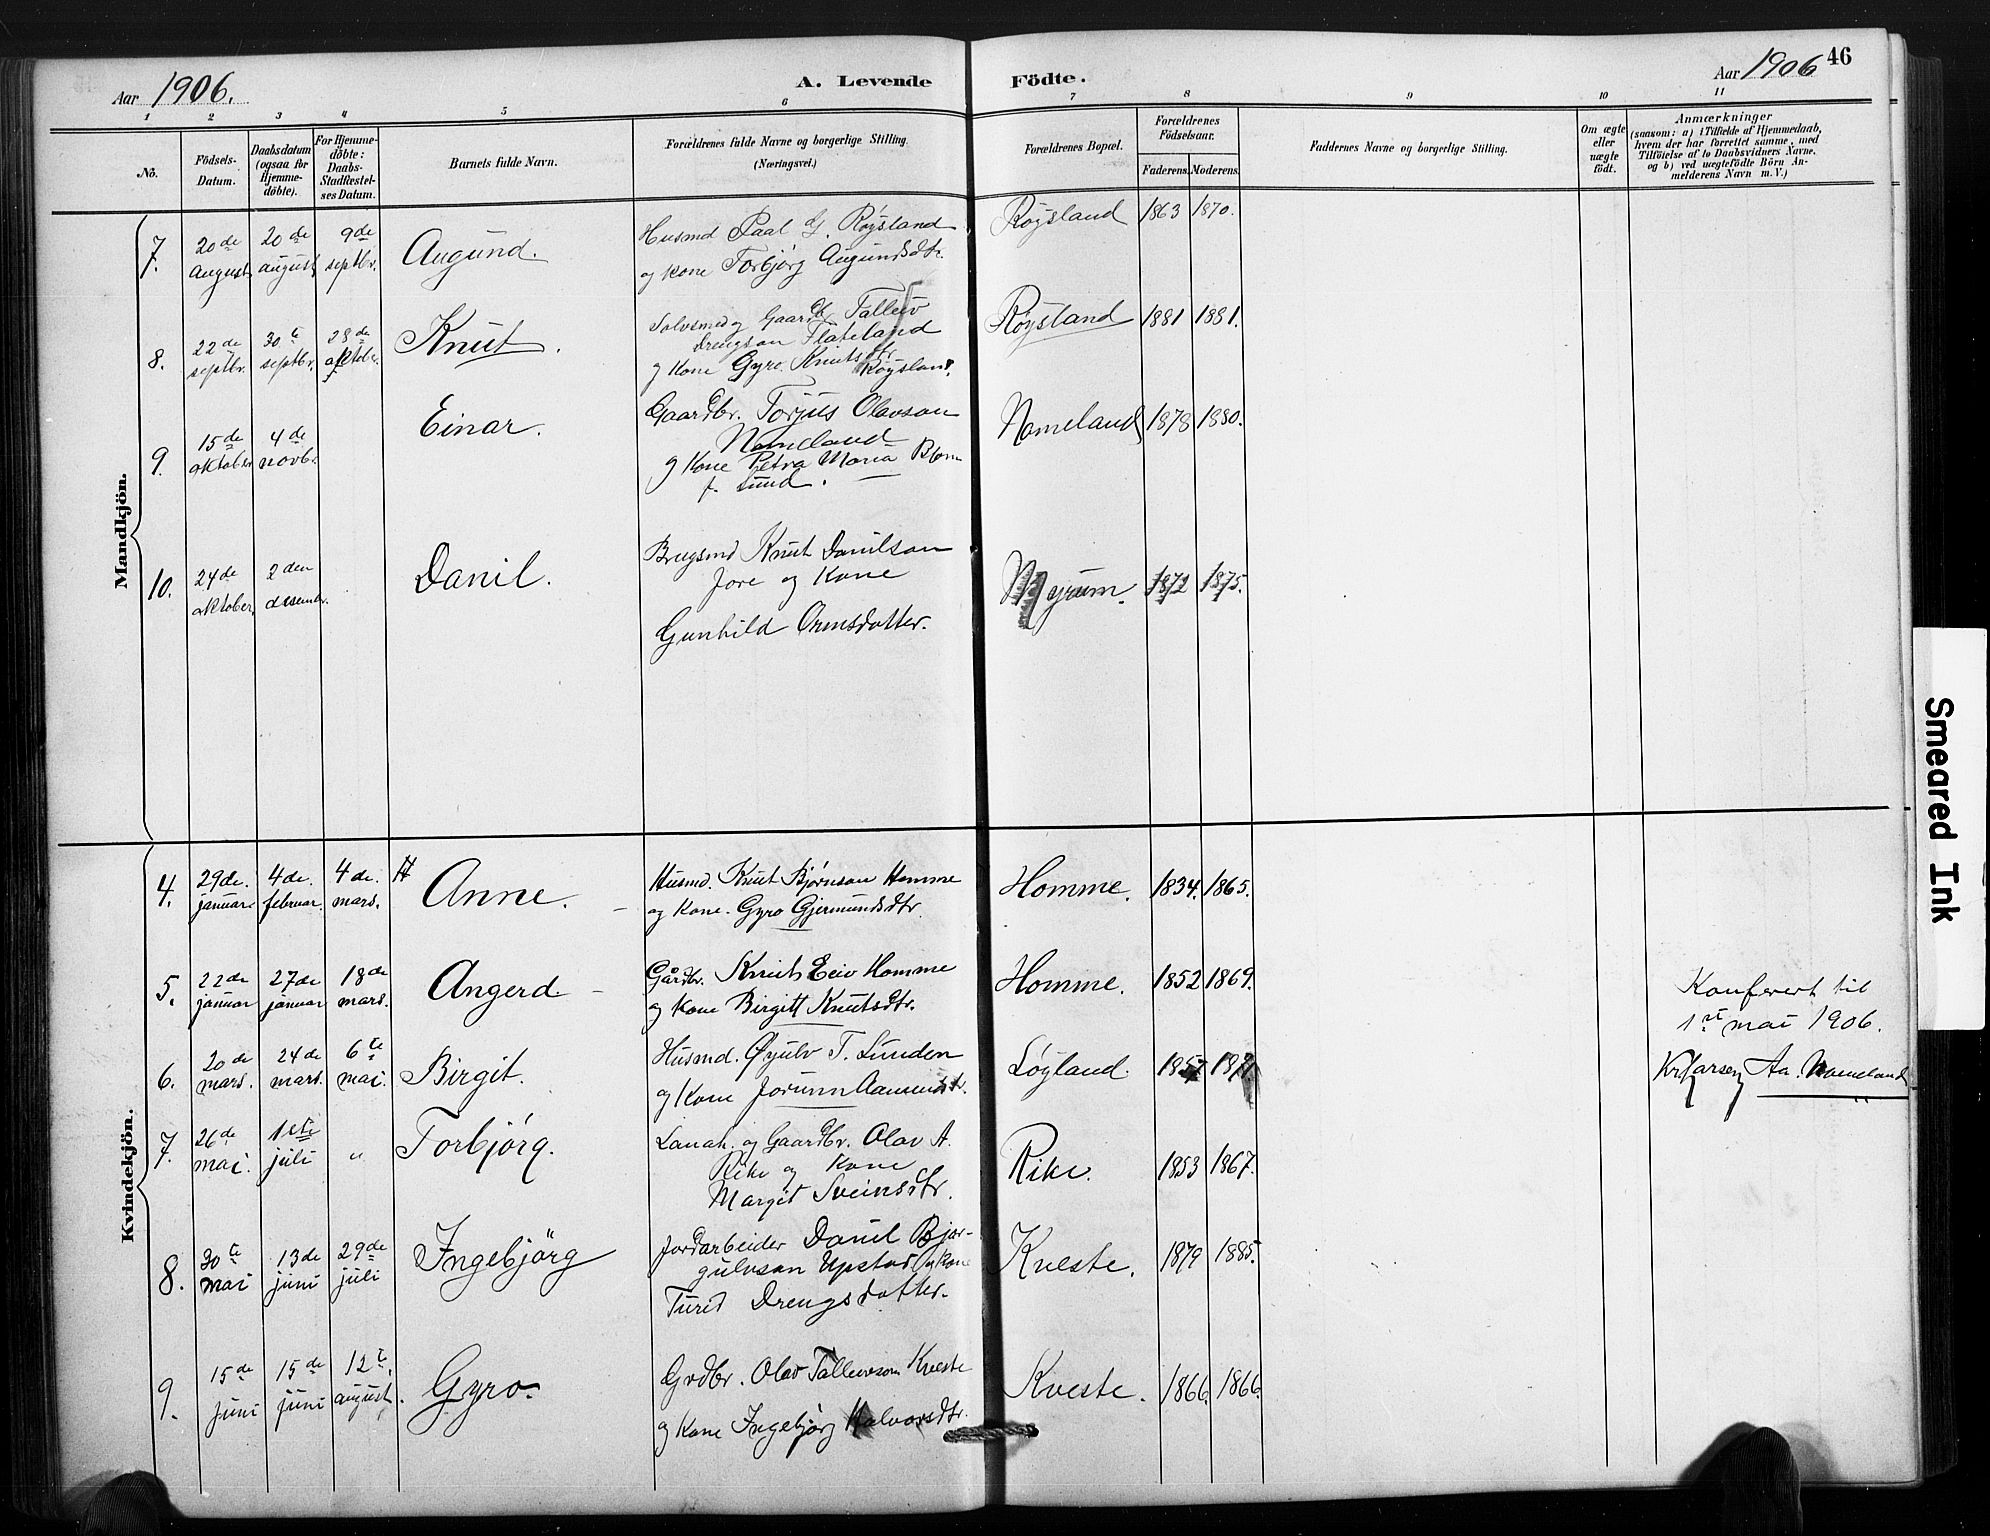 Aar 1906.
A. Levende Födte.
Aar 1906
46
1 2 3 4 5 6 7 8 9 10 11
No.
Födsels-
Datum.
Daabsdatum
(ogsaa for
Hjemme-
döbte).
For Hjemme-
döbte:
Daabs-
Stadfæstel-
ses Datum.
Barnets fulde Navn.
Forældrenes fulde Navne og borgerlige Stilling.
(Næringsvei.)
Forældrenes Bopæl.
Forældrenes
Födselsaar.
Faderens. Moderens.
Faddernes Navne og borgerlige Stilling.
Om ægte
eller
uægte
födt.
Anmærkninger
(saasom: a) i Tilfælde af Hjemmedaab,
hvem der har forrettet samme, med
Tilföielse af to Daabsvidners Navne.
og b) ved uegtefödte Börn An-
melderens Navn m. V.)
Mandkjön.
7.
20de
august
20de
august
9de
septbr.
Augund.
Husmd Paal G. Røysland
og kone Torbjørg Augundsdtr.
Røysland
1863
1870.
8.
22de
septbr.
30te
septbr.
28de
oktober.
Knut.
Sølvsmed og Gaardb. Tallev
Drengson Flateland
og Kone Gyro Knutsdtr.
Røysland.
Røysland
1881
1881.
9.
15de
oktober
4de
novbr.
Einar.
Gaardbr. Torjus Olavson
Nomeland
og Kone Petra Maria Blom
f. Lund.
Nomeland
1878
1880.
10.
24de
oktober,
2den
desembr.
Danil.
Brugsmd Knut Danilson
Jore og Kone
Gunhild Ormsdotter.
Myrum.
1872
1875.
Kvindekjön.
4.
29de.
januar
4de.
februar.
4de.
mars.
Anne.
Husmd. Knut Bjørnson Homme
og Kone. Gyro Gjermundsdtr.
Homme.
1834.
1865.
5.
22de
januar
27de
januar
18de
mars.
Angerd.
Gårdbr. Knut Eivs Homme
og Kone Birgitt Knutsdtr.
Homme.
1852
1869.
Konferert til
1st mai 1906.
6.
20de
mars.
24de
mars.
6te
mai.
Birgit.
Husmd. Øyulv T. Lunden
og Kone Jorunn Aamundsdtr.
Løgland.
1857
1871
Aa. Nomeland
7.
26de
mai.
1ste
juli
"
Torbjørg.
Lanah. og Gaardbr. Olav A.
Rike og Kone
Margit Sveinsdtr.
Rike.
1853
1867.
8.
30te
mai
13de
juni
29de
juli
Ingebjörg
Jordarbeider Danil Bjor-
gulvson Upstad og Kone
Turid Drengsdotter.
Kveste.
1879
1885.
9.
15de
juni
15de
juni
12te.
august.
Gyro.
Grdbr. Olav Tallevson Kveste
og Kone Ingebjørg Halvorsdtr.
Kveste.
1866.
1866.
Smeared Ink